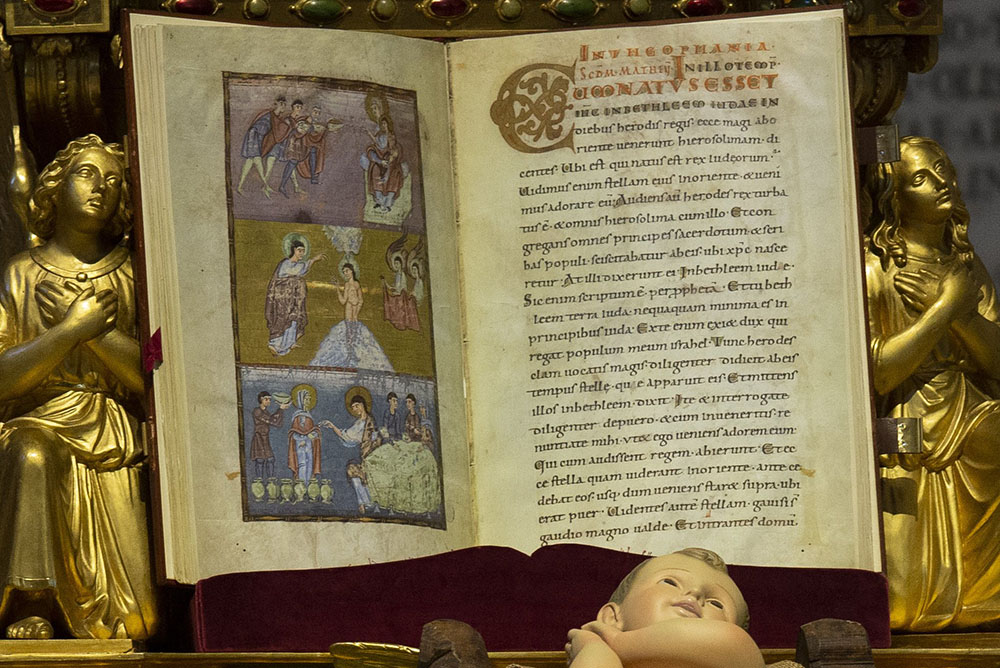 INTHEOPHANIA.
SCDM. MATHEŪ INILLOTEMP̄.
CUMNATUSESSET
IHC INBETHLEEM IUDAE IN
diebus herodis regis. ecce magi abo
riente venerunt hierosolimam. di
centes. Ubi est qui natus est rex Iudęorum.
Uidimus enim stellam eius inoriente. & ueni
mus adorare eū. Audiens aū herodes rex turba
tus ē. & omnis hierosolima cumillo. Etcon
gregans omnes principes sacerdotum. & scri
bas populi. sciscitabatur abeis. ubi xp̄c nasce
retur. At illi dixerunt ei. Inbethleem iudę.
Sic enim scriptum ē. per ꝓphetā. Ettu beth
leem terra iuda. nequaquam minima es in
principibus iuda. Exte enim exi& dux qui
regat populum meum israhel. Tunc herodes
clam uocatis magis. diligenter didicit abeis
tempus stellę. quę apparuit eis. Etmittens
illos inbethleem. dixit. Ite & interrogate
diligenter depuero. & cum inueneritis. re
nuntiate mihi. ut & ego veniens adorem eum.
Qui cum audissent regem. abierunt. Et ec
ce stella quam uiderant inoriente. ante ce
debat eos. usq; dum veniens staret supra. ubi
erat puer. Uidentes autē stellam. gauisi sī
gaudio magno valde. Et intrantes domū.